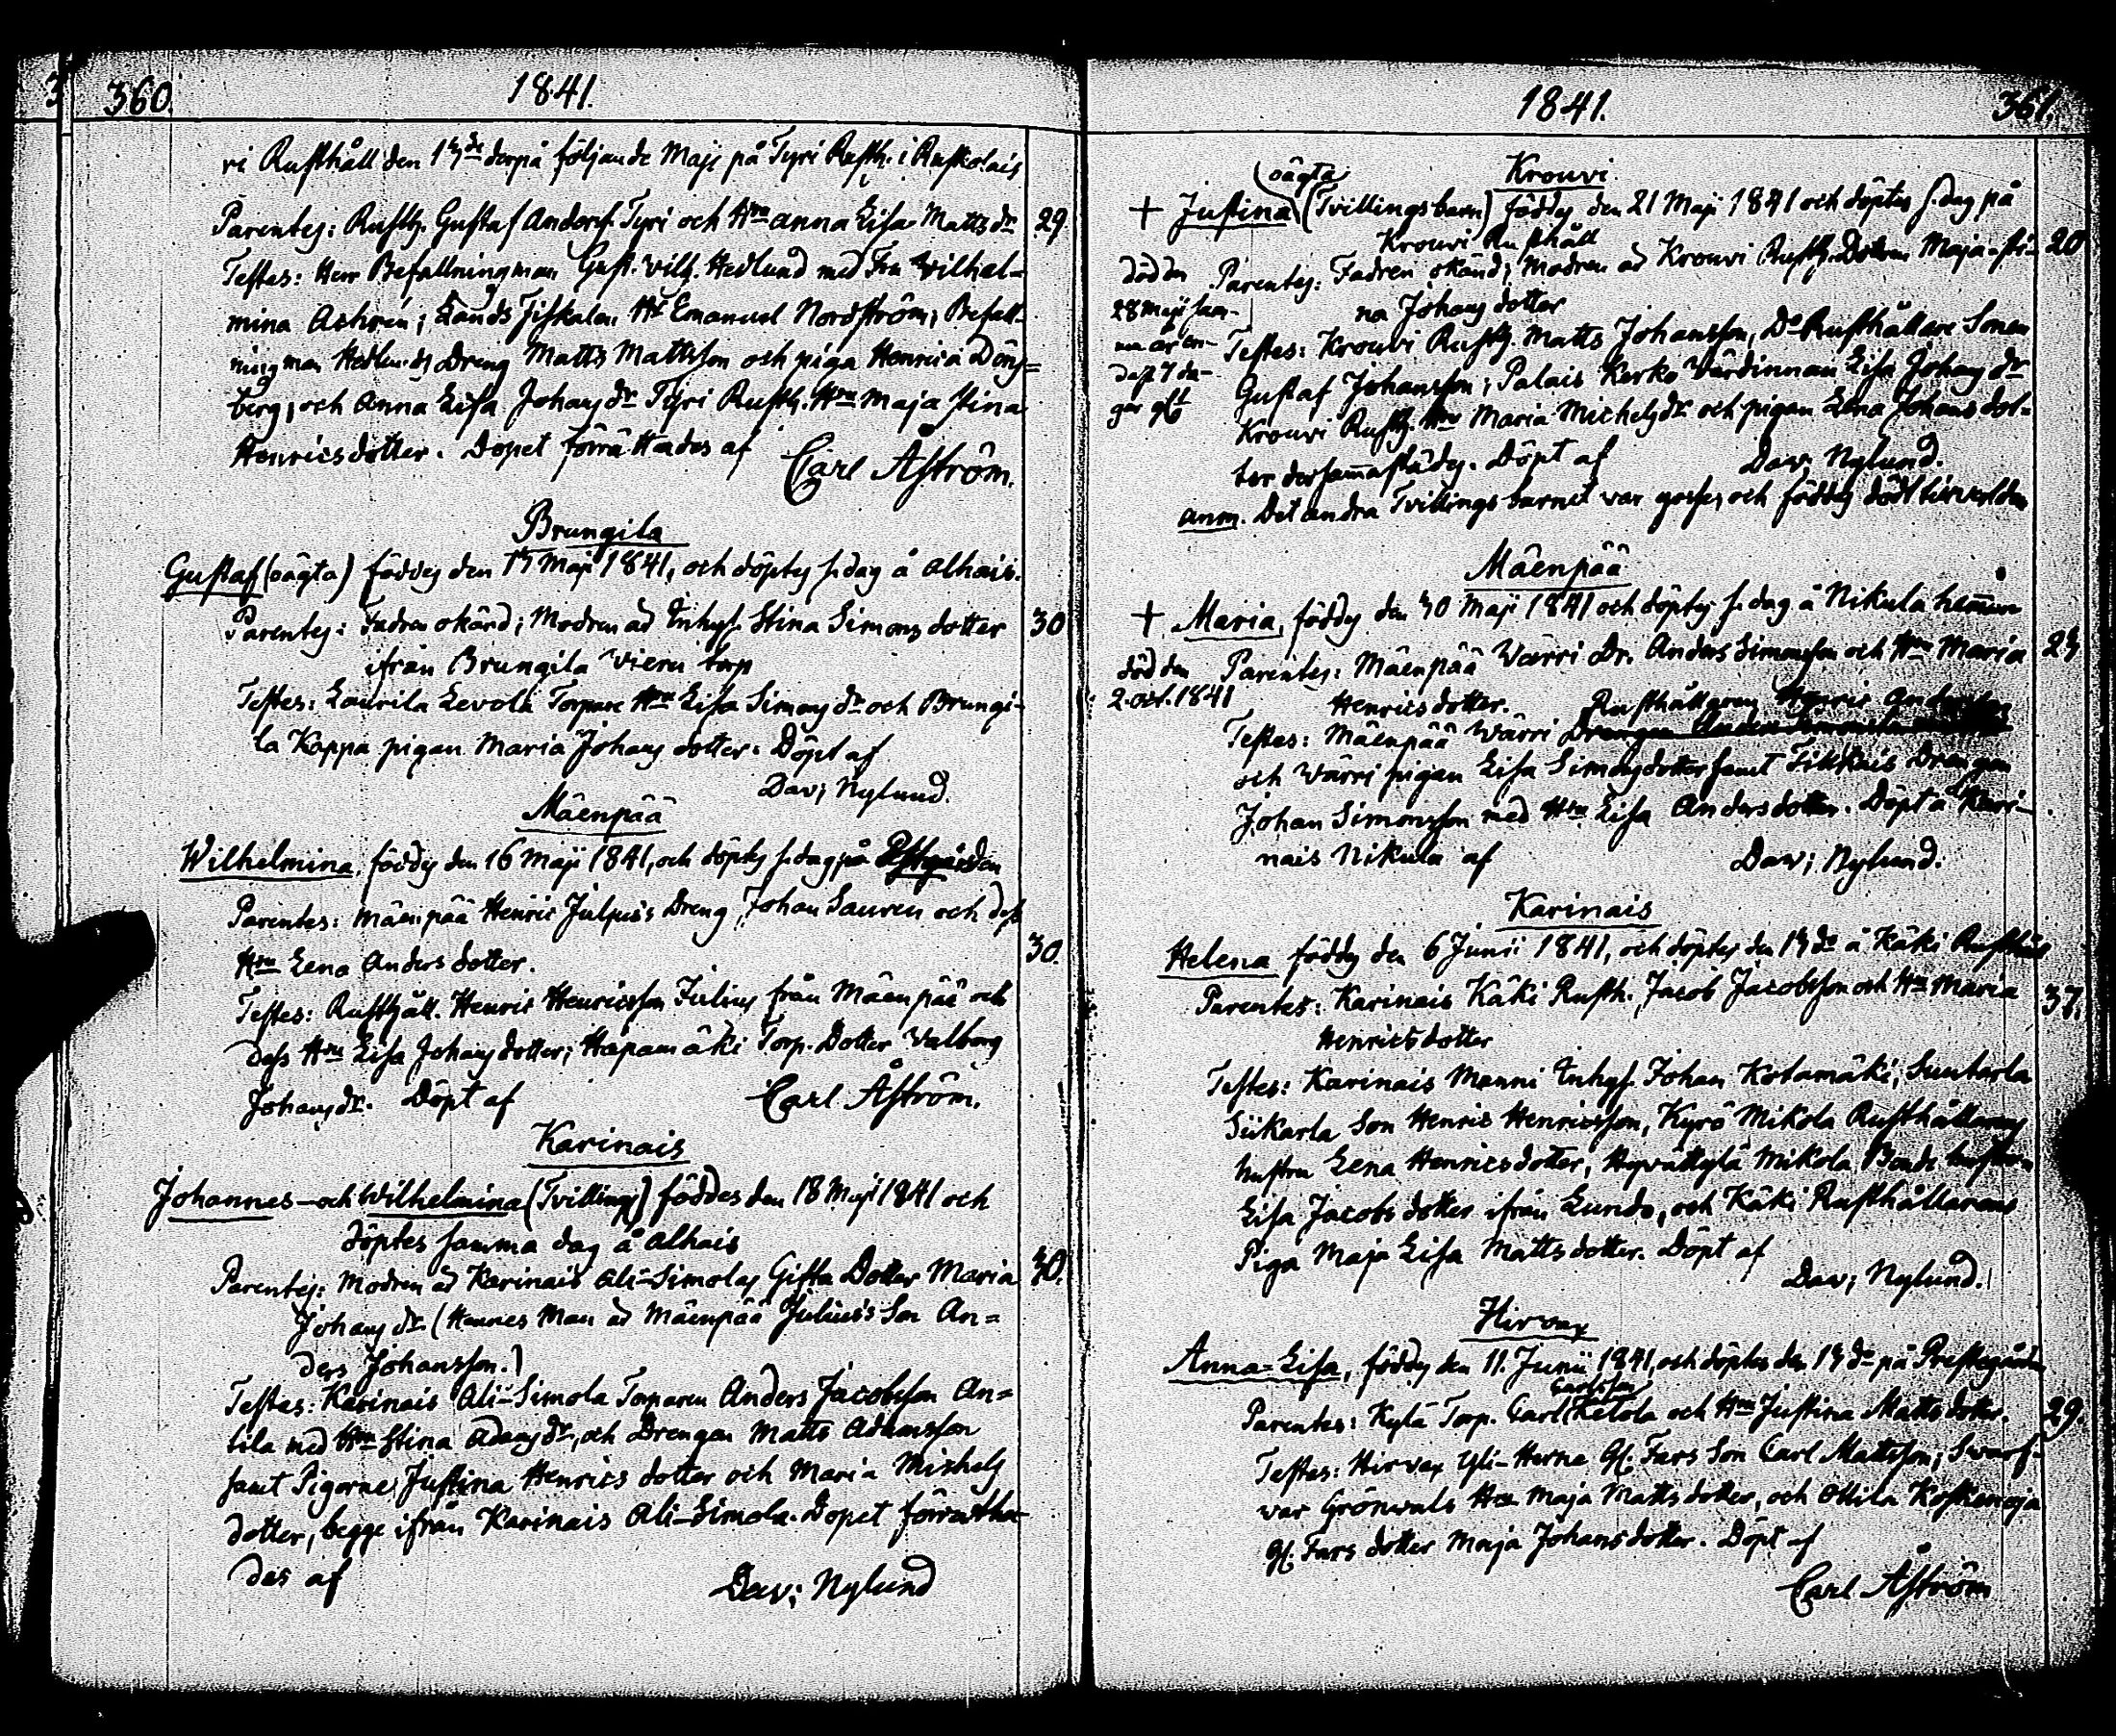 360. 1841.
ri Rusthåll den 13de derpå följande Maji på Tyri Rusth. i Ruskolais
Parentes: Rusth. Gustaf Anders. Tyri och Hru Anna Lisa Matts dr 29
Testes: Herr Befallningman Gust. Wilh. Hedlund med Fru Wilhel-
mina Achrén; Lands Fiskalen Hr Emanuel Nordström, Befall-
ningman Hedlunds Dreng Matts Mattsson och piga Henrica Döns-
berg, och Anna Lisa Johans dr Tyri Rusth. Hru Maja Stina
Henricsdotter. Dopet förrättades af Carl Åström.
Brungila
Gustaf (oägta) föddes den 13 Maji 1841, och döptes s. dag å Alhais.
Parentes: Fadren okänd; Modren äd Inhys. Stina Simons dotter 30
ifrån Brungila Vieru torp
Testes: Laurila Levola Torpare Hru Lisa Simons dr och Brungi-
la Kappa pigan Maria Johans dotter. Döpt af
Dav; Nylund.
Mäenpää
Wilhelmina, föddes den 16 Maji 1841, och döptes s. dag på
Parentes: Mäenpää Henric Julius's Dreng, Johan Sauren och dess
Hru Lena Anders dotter. 30.
Testes: Rusthåll. Henric Henricsson Julius från Mäenpää och
dess Hru Lisa Johansdotter; Hapamäki Torp. Dotter Walborg
Johans dr. Döpt af Carl Åström.
Karinais
Johannes och Wilhelmina (Tvillingr) föddes den 18 Maji 1841 och
döptes samma dag å Alhais
Parentes: Modren äd Karinais Ali-Simolas Gifta Dotter Maria 30.
Johans dr. (Hennes Man äd Mäenpää Julius's Son An=
ders Johansson.)
Testes: Karinais Ali-Simola Torparen Anders Jacobsson An=
tila med Hru Stina Adams dr, och Drengen Matts Adamsson
samt Pigorne Justina Henrics dotter och Maria Michels
dotter, begge ifrån Karinais Ali-Simola. Dopet förrätta-
des af Dav; Nylund
1841. 361.
Krouvi
oägta
+ Justina (Tvillingsbarn) föddes den 21 Maji 1841 och döptes s. dag på
Krouvi Rusthåll
Parentes: Fadren okänd; Modren äd Krouvi Rusth. Dottren Maja-Sti- 20
na Johans dotter
död den
28 Maji sam-
ma år en-
dast 7 da-
gar gl
Testes: Krouvi Rusth. Matts Johansson, Do Rusthållare Sonen
Gustaf Johansson; Palais Kerko Värdinnan Lisa Johans dr
Krouvi Rusth. Hru Maria Michels dr och pigan Lena Johans dot-
ter dersammastädes. Döpt af Dav; Nylund.
Anm. Det andra Tvillings barnet var gosse, och föddes död till verlden
Mäenpää
+ Maria, föddes den 30 Maji 1841 och döptes s. dag å Nikula hemman
död den
2. oct. 1841
Parentes: Mäenpää Wärri Dr. Anders Simonsson och Hru Maria 23
Henricsdotter.
Rusthållaren Henric Andersson
Testes: Mäenpää Wärri
och Wärri pigan Lisa Simonsdotter samt Tikkais Drengen
Johan Simonsson med Hru Lisa Andersdotter. Döpt å Kari-
nais Nikula af Dav; Nylund.
Karinais
Helena föddes den 6 Junii 1841, och döptes den 13 do å Käki Rusthåll
Parentes: Karinais Käki Rusth. Jacob Jacobsson och Hru Maria 37.
Henricsdotter
Testes: Karinais Manni Inhys. Johan Kotamäki, Suutarla
Siikarla Son Henric Henricsson, Kyrö Mikola Rusthållarens
hustru Lena Henricsdotter, Hypättylä Mikola Bonde hustrun
Lisa Jacobs dotter ifrån Lundo, och Käki Rusthållarens
Piga Maja Lisa Mattsdotter. Döpt af
Dav; Nylund.
Hirvax
Anna-Lisa, föddes den 11. Junii 1841, och döptes den 13 do på Prestegården
Carlsson
Parentes: Kylä Torp. Carl Ketola och Hru Justina Matts dotter. 29.
Testes: Hirvax Yli-Herna Gl. Fars Son Carl Mattsson; Swarf-
var Grönwals Hru Maja Matts dotter, och Ottila Koskenoja
Gl. Fars dotter Maja Johansdotter. Döpt af
Carl Åström